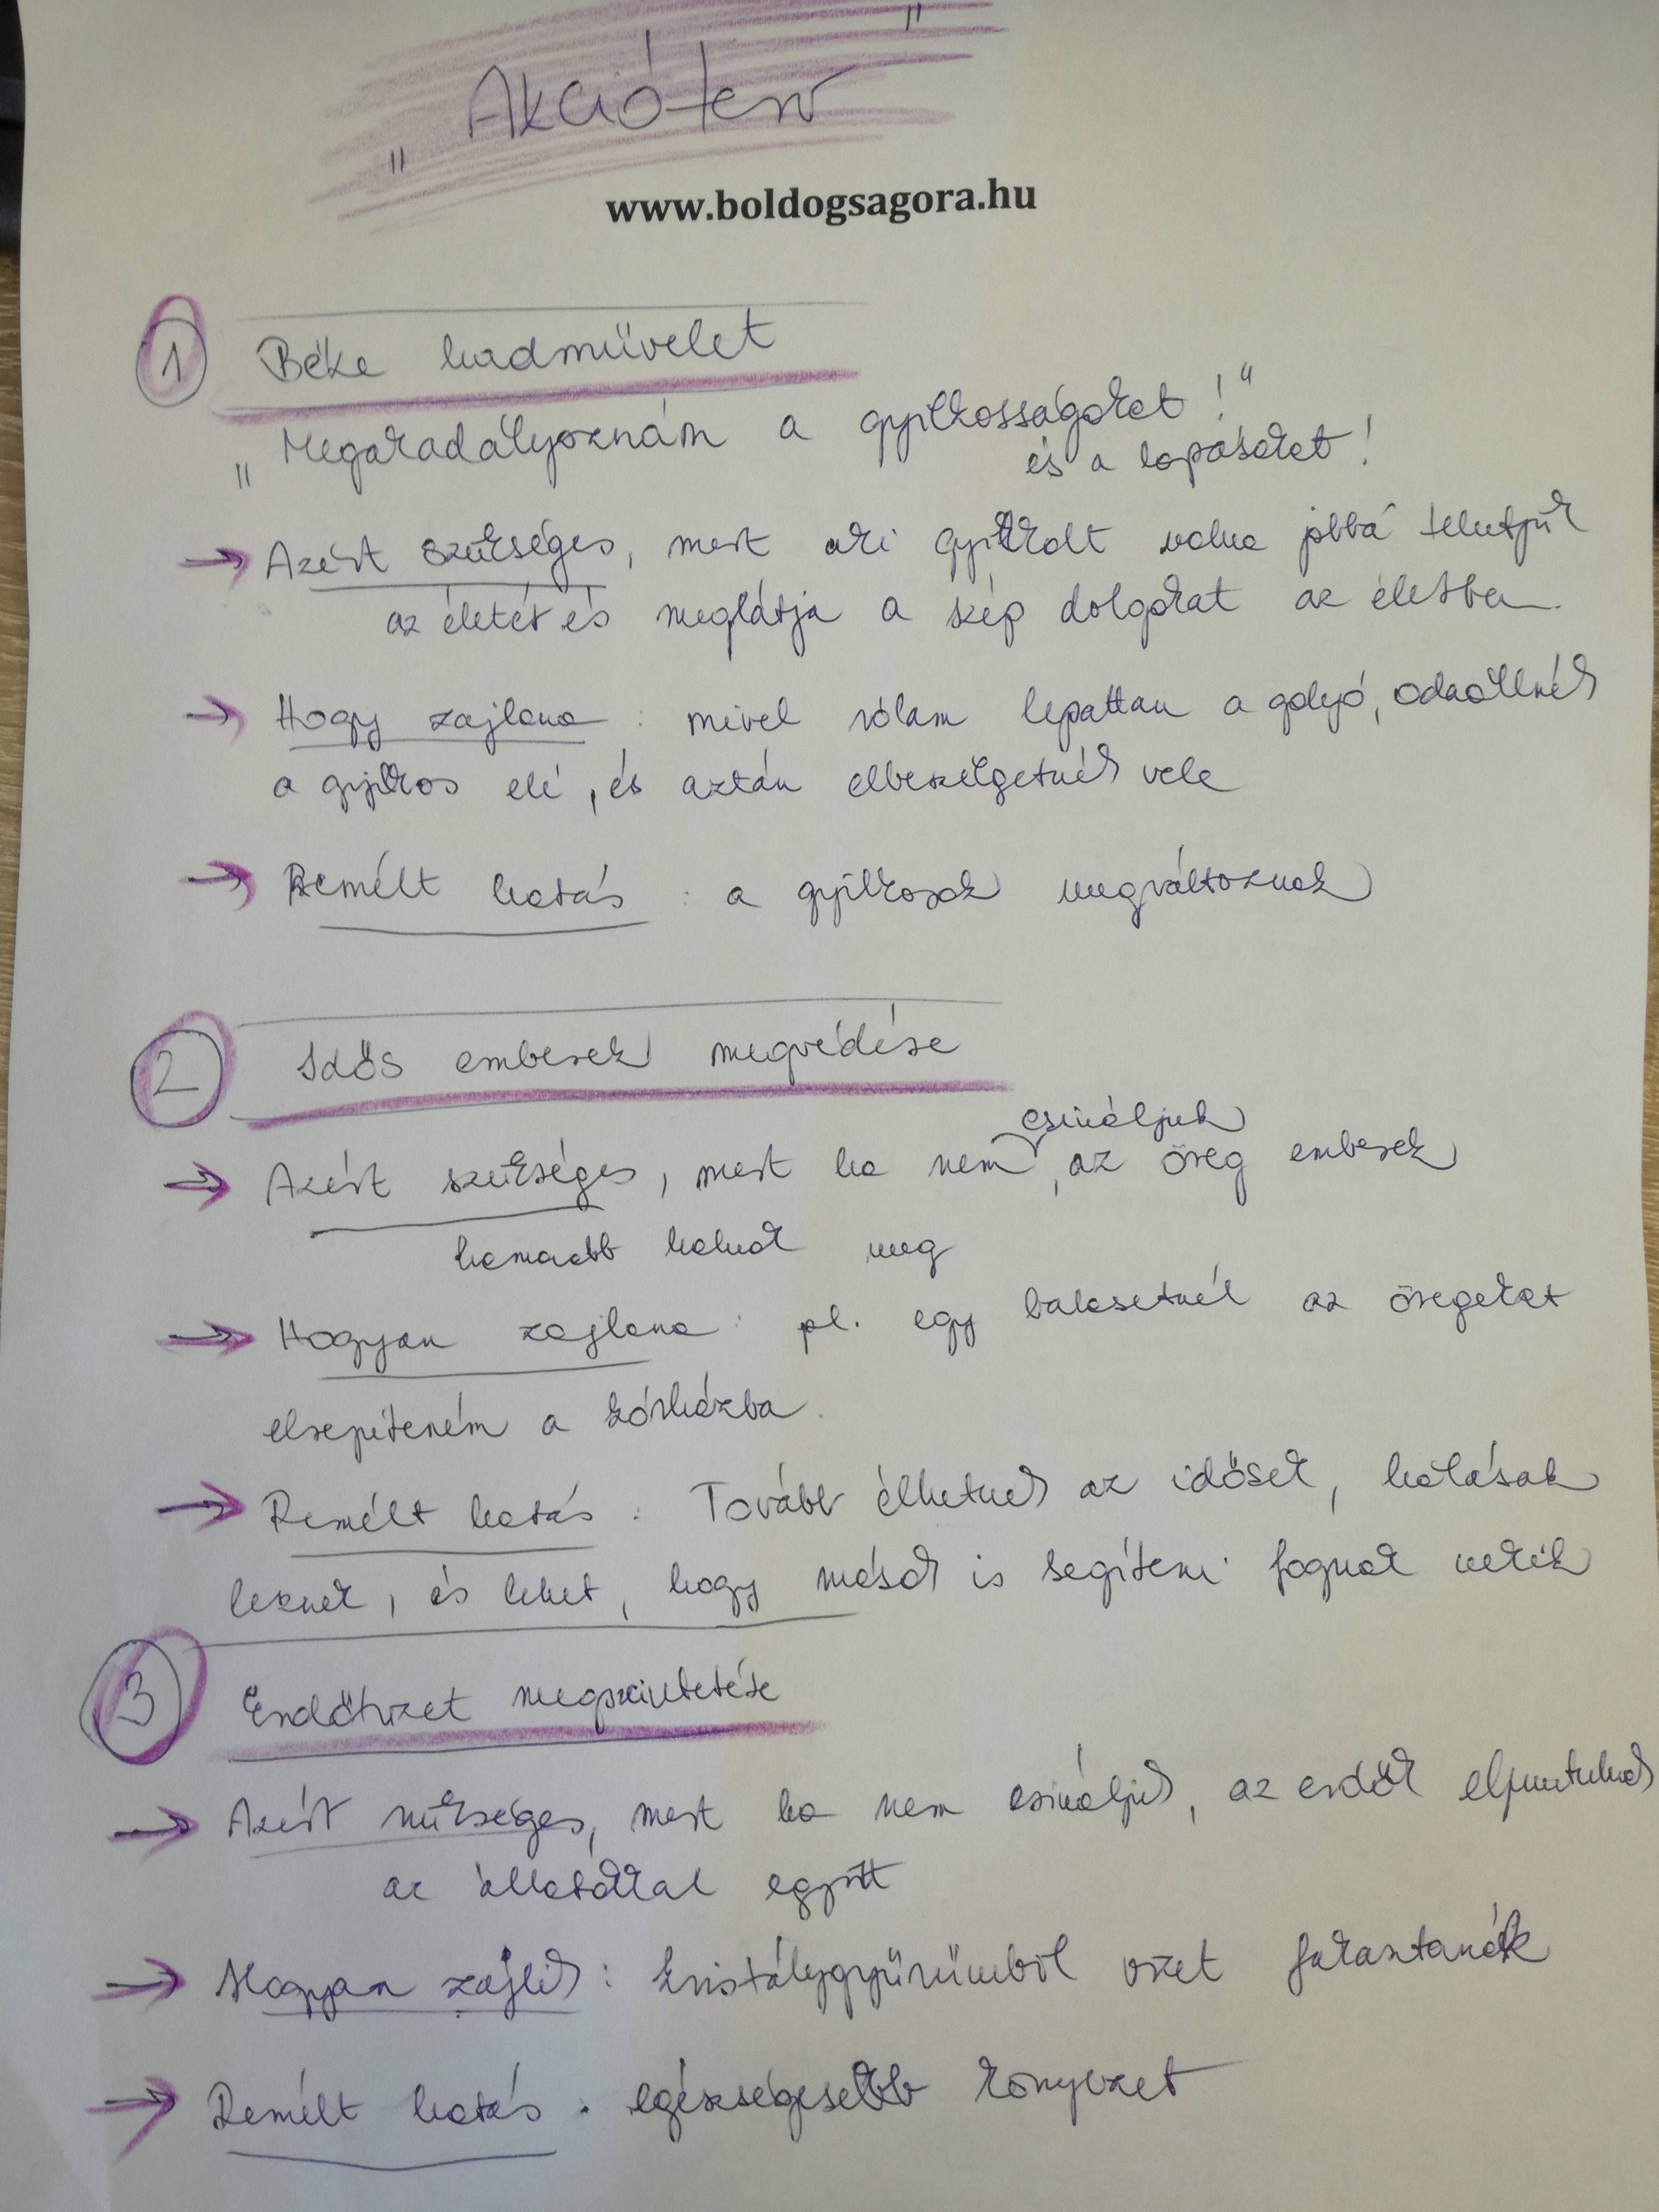 „Akcióterv"
www.boldogsagora.hu
1 Béke hadművelet
„Megakadályoznám a gyilkosságokat!"
és a lopásokat!
→ Azért szükséges, mert aki gyilkolt volna jobbá tehetjük
az életét és meglátja a szép dolgokat az életben.
→ Hogy zajlana: mivel rólam lepattan a golyó, odaállnék
a gyilkos elé, és aztán elbeszélgetnék vele
→ Remélt hatás: a gyilkosok megváltoznak
2 Idős emberek megvédése
csináljuk
→ Azért szükséges, mert ha nem, az öreg emberek
hamarabb halnak meg
→ Hogyan zajlana: pl. egy balesetnél az öregeket
elrepíteném a kórházba.
→ Remélt hatás: Tovább élhetnek az idősek, hálásak
lesznek, és lehet, hogy mások is segíteni fognak nekik
3 Erdőtüzek megszüntetése
→ Azért szükséges, mert ha nem csináljuk, az erdők elpusztulnak
az állatokkal együtt
→ Hogyan zajlik: kristálygyűrűmből vizet fakasztanék
→ Remélt hatás: egészségesebb környezet